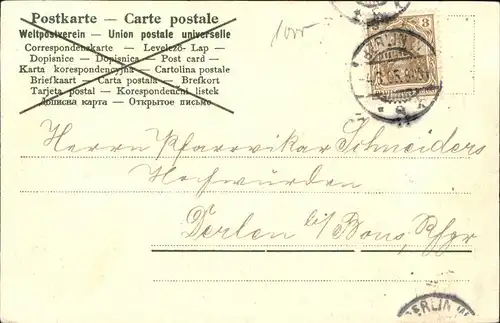 Postkarte — Carte postale
Weltpostverein — Union postale universelle
Correspondenzkarte — Levelező-Lap —
Dopisnice — Dopisnica — Post card —
Karta korespondencyjna — Cartolina postale
Briefkaart — Carta postala — Brefkort
Tarjeta postal — Korespondenčni listek
Дописна карта — Открытое письмо
3
BERLIN W
Herrn Pfarrvikar Schneiders
Hochwürden
Derlen b/ Bous, Rhpr
BERLIN W